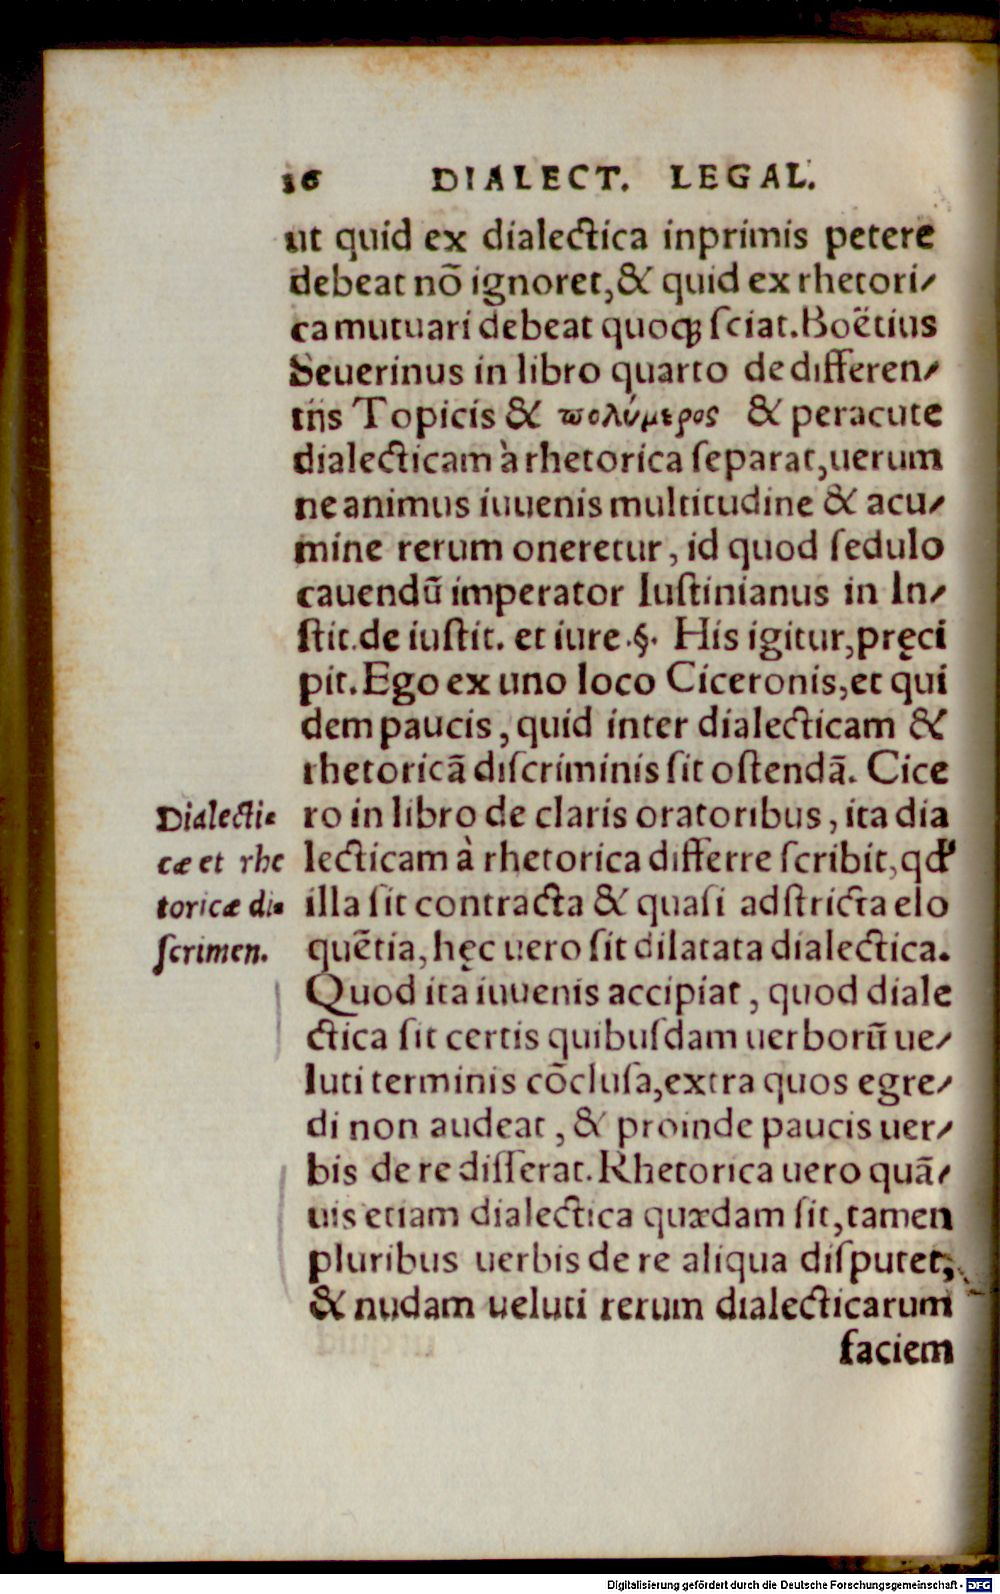 16 DIALECT. LEGAL.
ut quid ex dialectica inprimis petere
debeat nõ ignoret, & quid ex rhetori⸗
ca mutuari debeat quoqꝫ ſciat. Boëtius
Seuerinus in libro quarto de differen⸗
tijs Topicis & πολύμερος & peracute
dialecticam à rhetorica ſeparat, uerum
ne animus iuuenis multitudine & acu⸗
mine rerum oneretur, id quod ſedulo
cauendũ imperator Iuſtinianus in In⸗
ſtit. de iuſtit. et iure .§. His igitur, pręci
pit. Ego ex uno loco Ciceronis, et qui
dem paucis, quid inter dialecticam &
rhetoricã diſcriminis ſit oſtendã. Cice
ro in libro de claris oratoribus, ita dia
lecticam à rhetorica differre ſcribit, qd'
illa ſit contracta & quaſi adſtricta elo
quẽtia, hęc uero ſit dilatata dialectica.
Quod ita iuuenis accipiat, quod diale
ctica ſit certis quibuſdam uerborũ ue⸗
luti terminis cõcluſa, extra quos egre⸗
di non audeat, & proinde paucis uer⸗
bis de re diſſerat. Rhetorica uero quã⸗
uis etiam dialectica quædam ſit, tamen
pluribus uerbis de re aliqua diſputet,
& nudam ueluti rerum dialecticarum
faciem
Dialecti⸗
cæ et rhe
toricæ di⸗
ſcrimen.
Digitalisierung gefördert durch die Deutsche Forschungsgemeinschaft - DFG